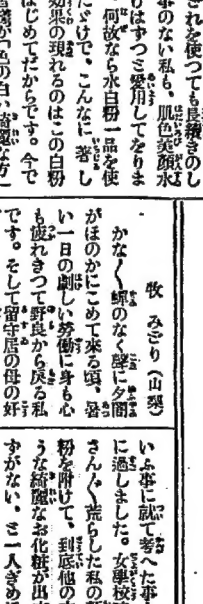 これを使つても長續きのし
事のない私も、肌色美顏水
りはずつと愛用してをりま
何故なら水白粉一品を使
だけで、こんなに著し
効果の現れるのはこの白粉
はじめてだからです。今で
牧 みどり(山梨)
かな〳〵蟬のなく聲に夕闇
がほのかにこめて來る頃、暑
い一日の劇しい勞働に身も心
も疲れきつて野良から戻る私
です。そして留守居の母の好
いふ事に就て考へた事
に過しました。女學校
さん〴〵荒らした私の
粉を附けて、到底他の
うな綺麗なお化粧が出
すがない、と一人ぎめ